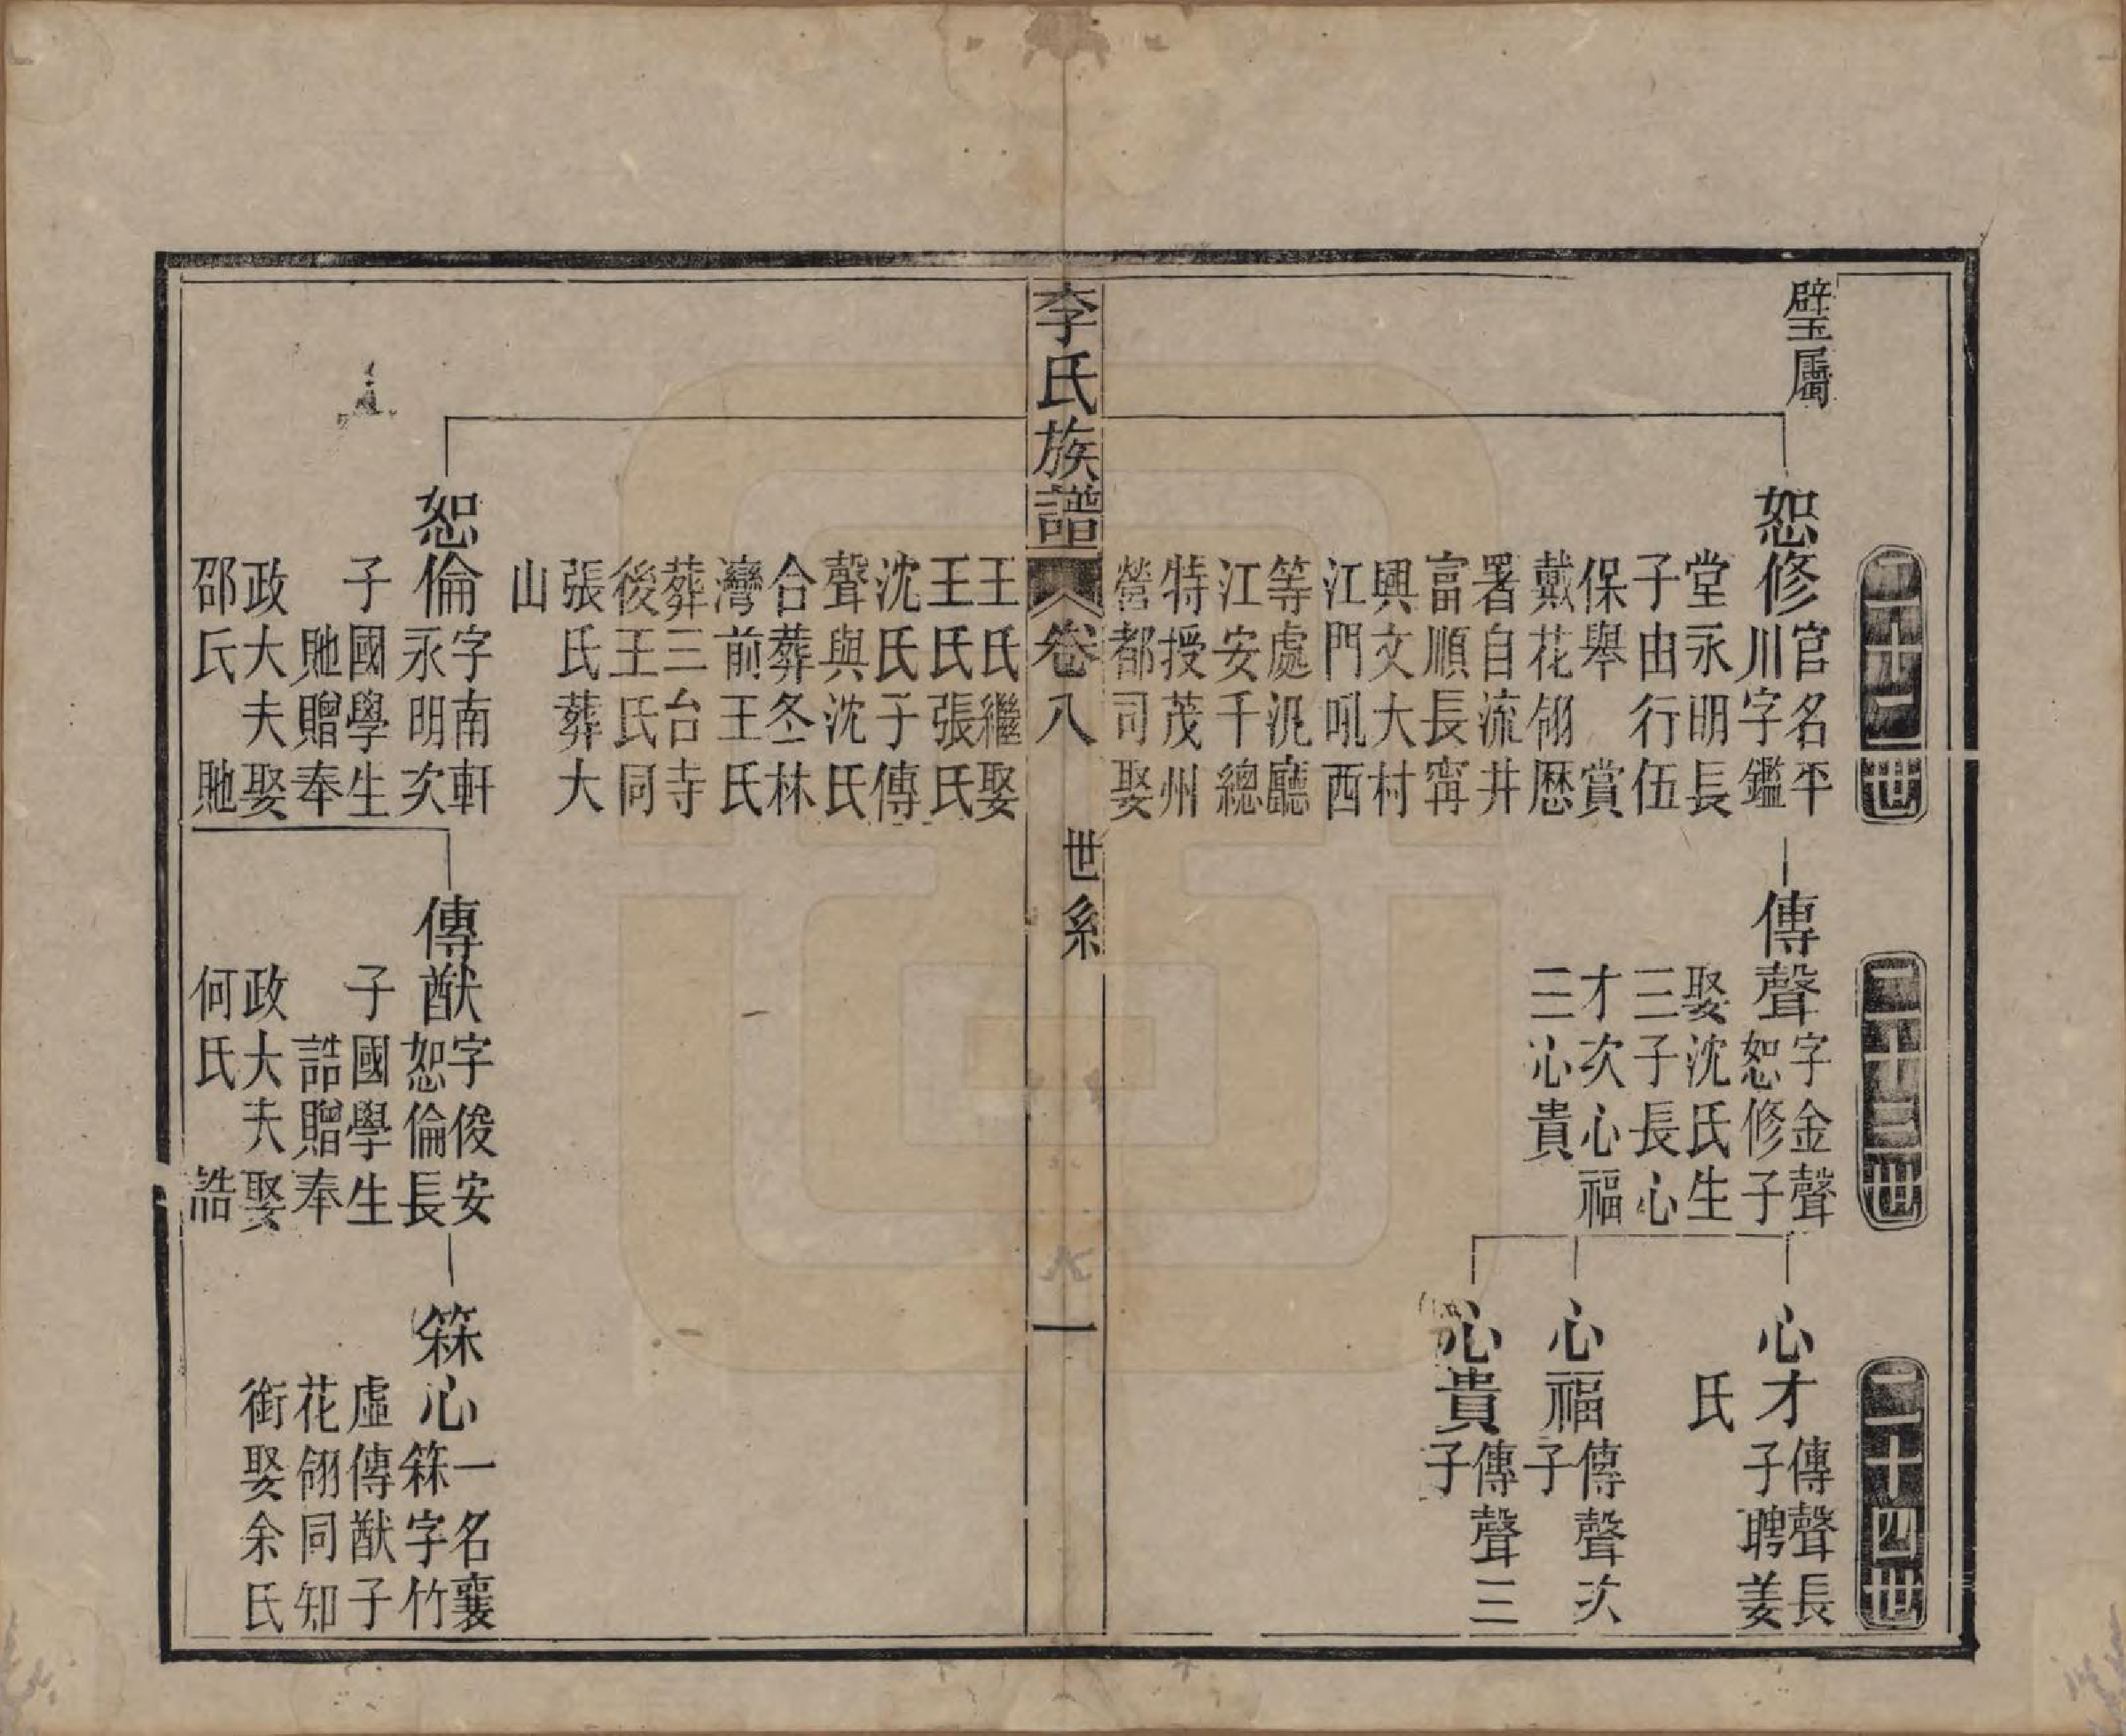 璧屬
二十二世
恕修
官名平
川字鑑
堂永明長
子由行伍
保舉 賞
戴花翎歷
署自流井
富順長甯
興文大村
江門吼西
等處汛廳
江安千總
特授茂州
營都司娶
王氏繼娶
王氏張氏
沈氏子傳
聲與沈氏
合葬冬林
灣前王氏
葬三台寺
後王氏同
張氏葬大
山
恕倫
字南軒
永明次
子國學生
貤贈奉
政大夫娶
邵氏 貤
二十三世
傳聲
字金聲
恕修子
娶沈氏生
三子長心
才次心福
三心貴
傳猷
字俊安
恕倫長
子國學生
誥贈奉
政大夫娶
何氏 誥
二十四世
心才
傳聲長
子聘姜
氏
心福
傳聲次
子
心貴
傳聲三
子
箖心
一名襄
箖字竹
虛傳猷子
花翎同知
銜娶余氏
李氏族譜 卷八 世系 一